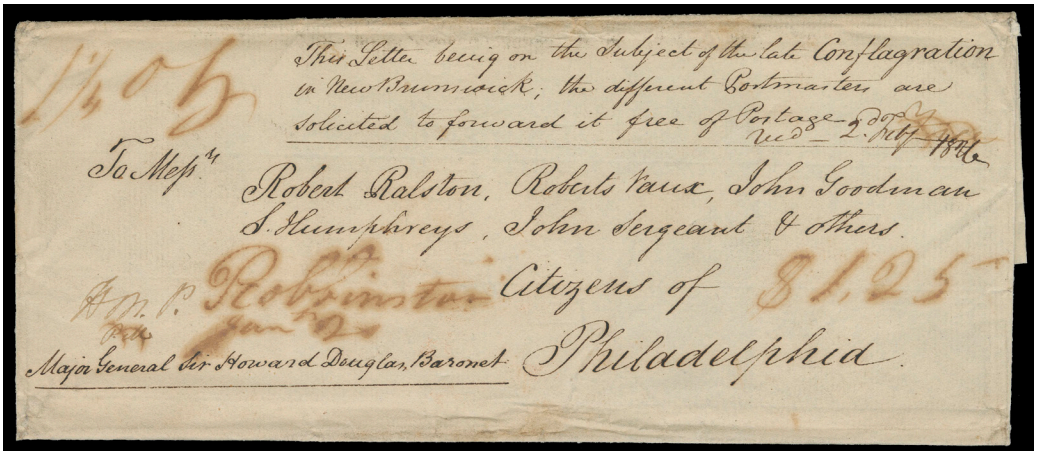 This Letter being on the Subject of the late Conflagration
in New Brunswick; the different Postmasters are
solicited to forward it free of Postage
recd 2d Feby 1826
1 1/4 oz
To Messrs
Robert Ralston, Roberts Vaux, John Goodman
S. Humphreys, John Sergeant & others.
Citizens of
$1,25
Robbinston
Jany 20
Philadelphia.
Major General Sir Howard Douglas, Baronet